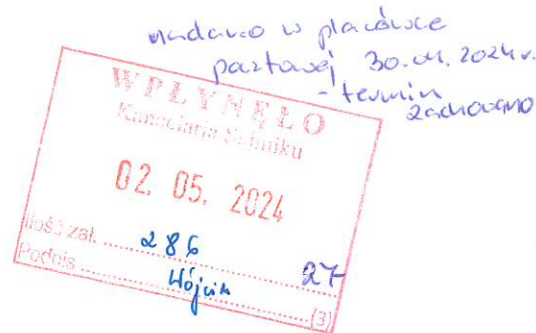 nadano w placówce
pocztowej 30.04.2024r.
- termin
zachowano
WPŁYNĘŁO
Kancelaria Senniku
02. 05. 2024
Ilość zał. ..... 286
27
Podpis ..... Wójcik
(3)